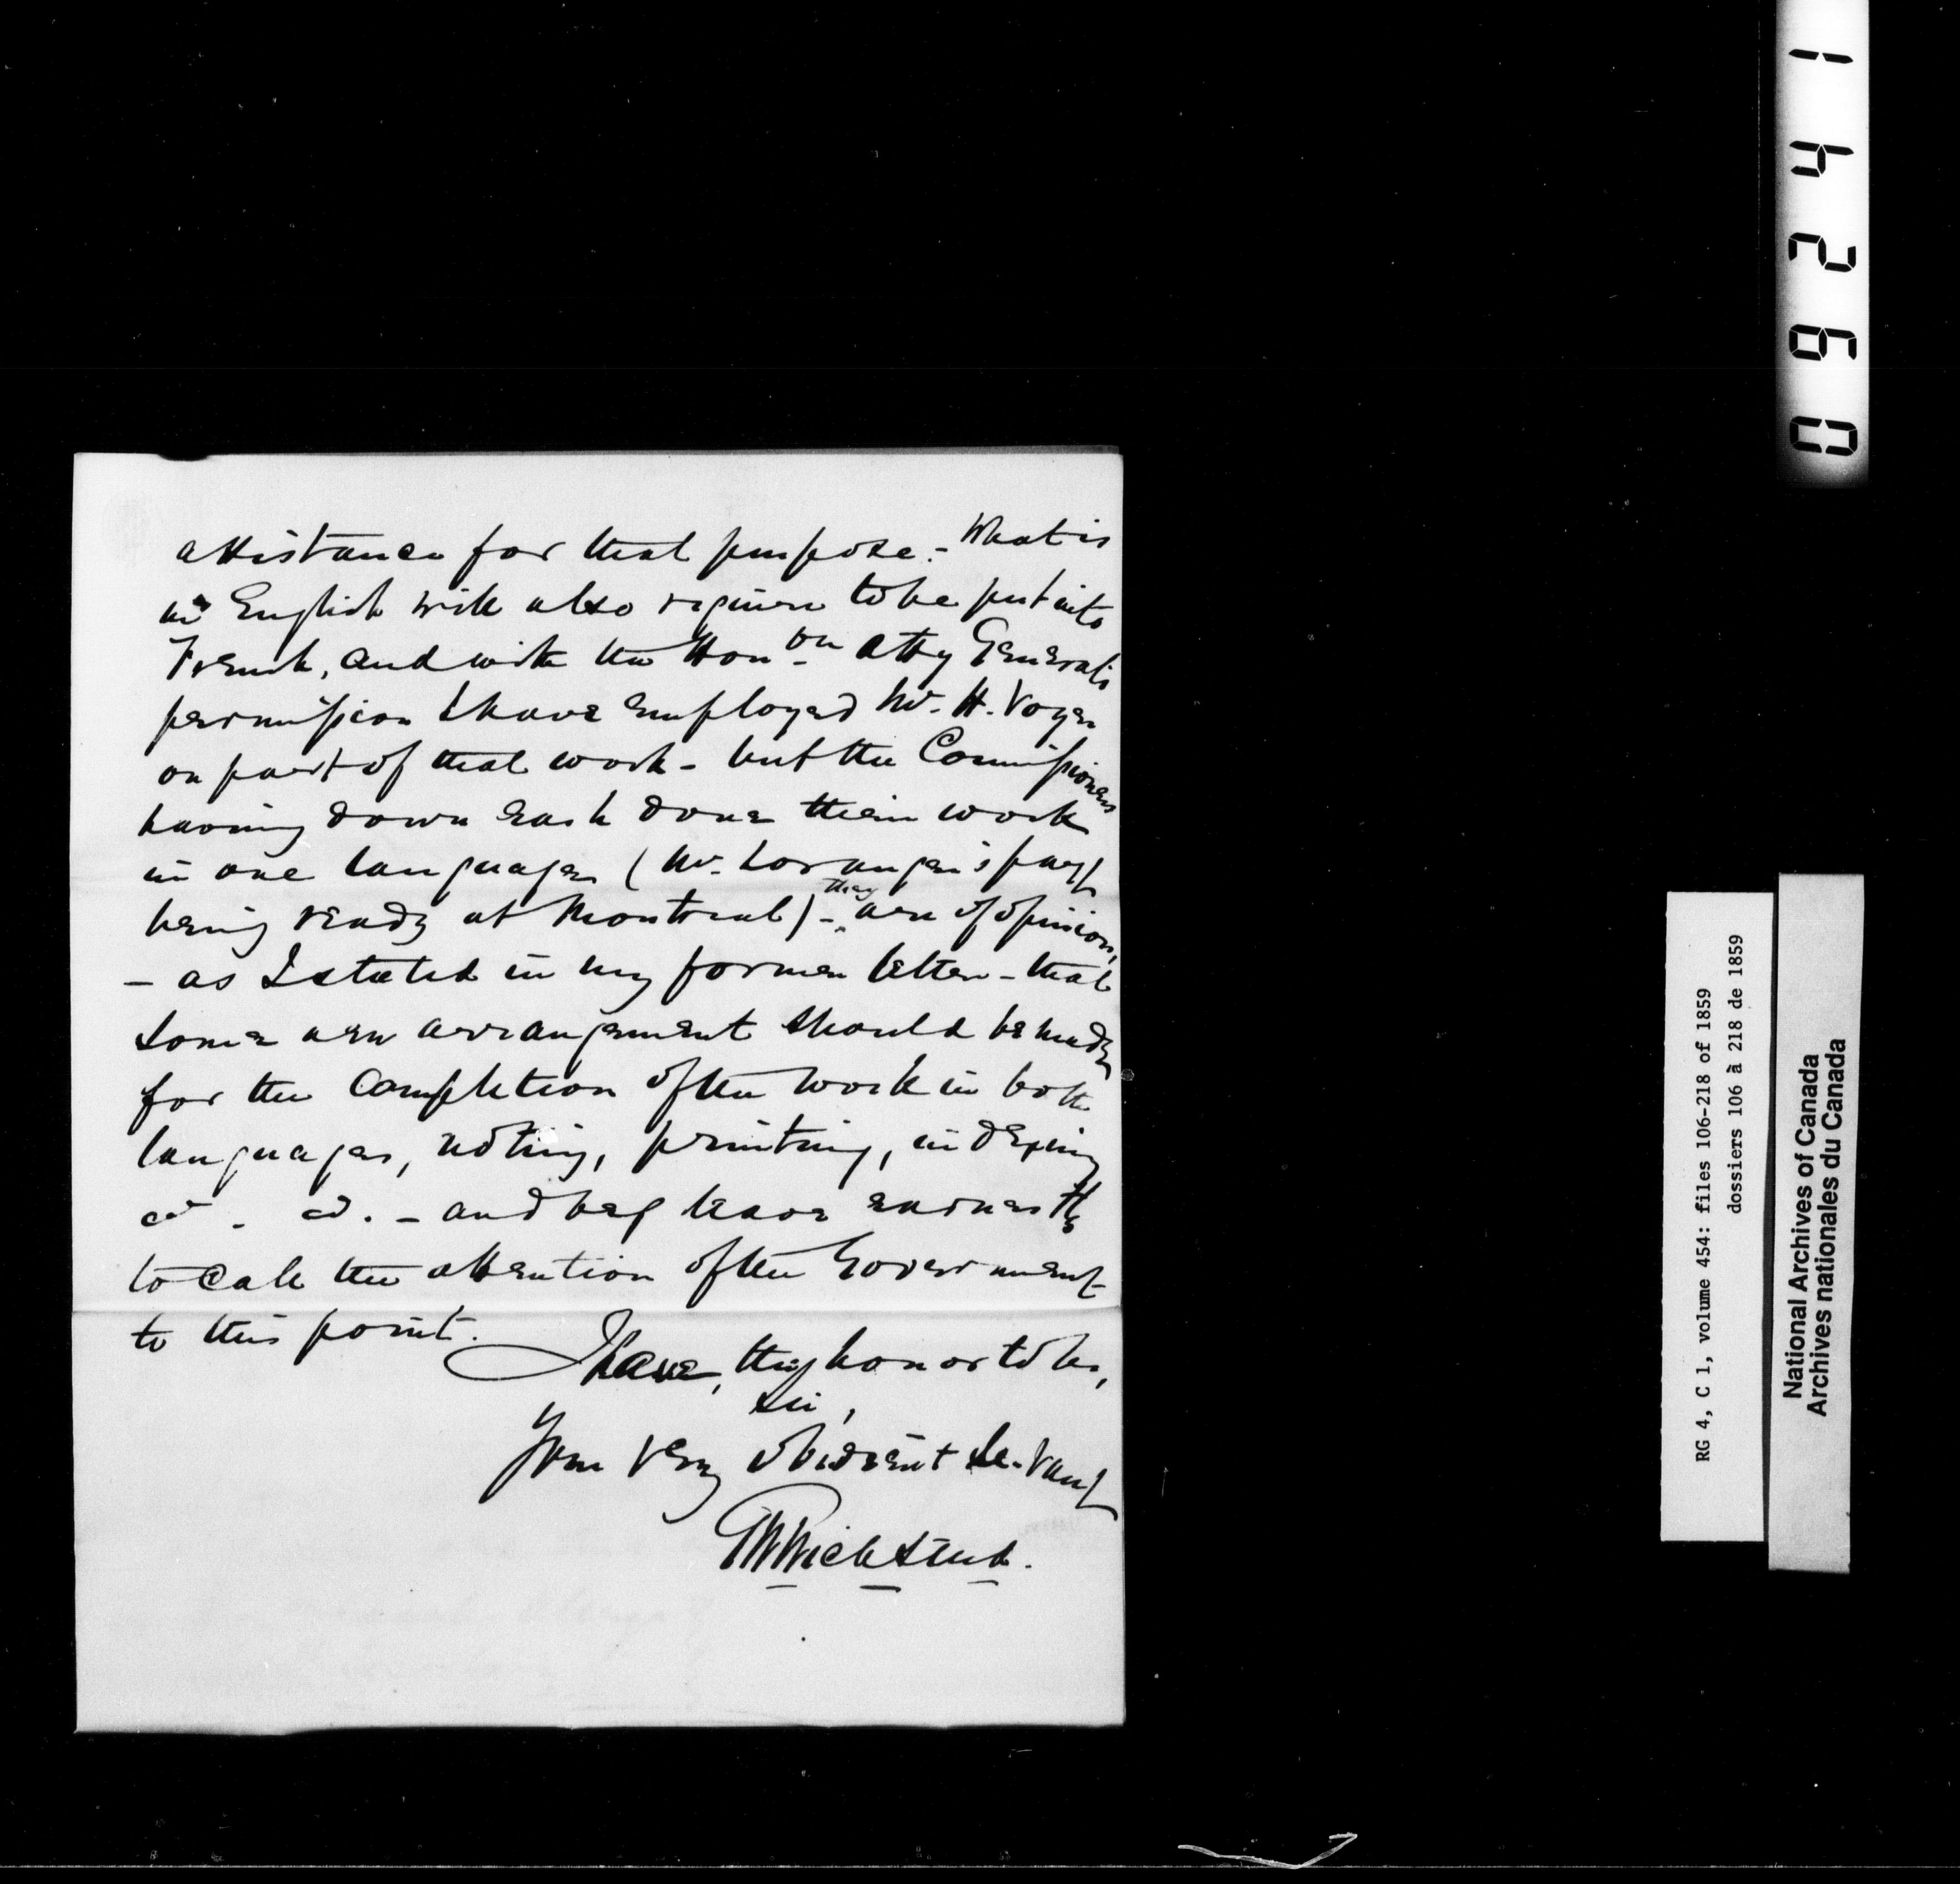 assistance for that purpose. - What is
in English will also require to be put into
French, and with the Honble Atty General's
permission I have employed Mr. H. Voyer
on part of that work - but the Commissioners
having down each done their work
in one language (Mr. Loranger's part
being ready at Montreal) - they are of opinion,
- as I stated in my former letter - that
some new arrangement should be made
for the completion of the work in both
languages, noting, printing, indexing
&c. &c. - and beg leave earnestly
to call the attention of the Government
to this point.
I have, the honor to be,
Sir,
Your very obedient Servant
GWWicksteed.
1 4 2 6 0
RG 4, C 1, volume 454: files 106-218 of 1859
dossiers 106 à 218 de 1859
National Archives of Canada
Archives nationales du Canada